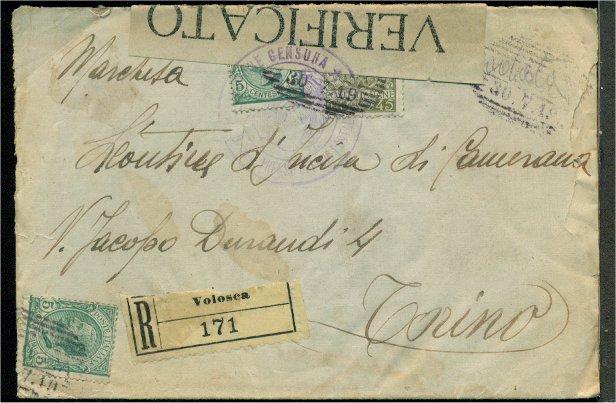 VERIFICATO
CENSURA
5
CENTES
45
30.7.1
Marchesa
Léontine d'Incisa di Camerana
V. Jacopo Durandi 4
Torino
R
Volosca
171
5